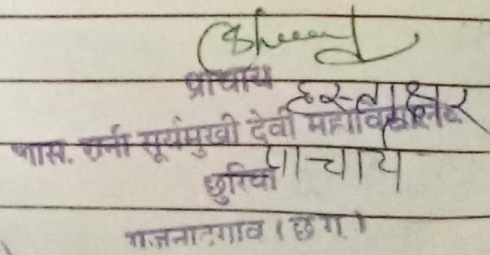 प्राचार्य हस्ताक्षर
शास. रानी सूर्यमुखी देवी महाविद्यालय
छुरिया प्राचार्य
राजनांदगांव (छ.ग.)